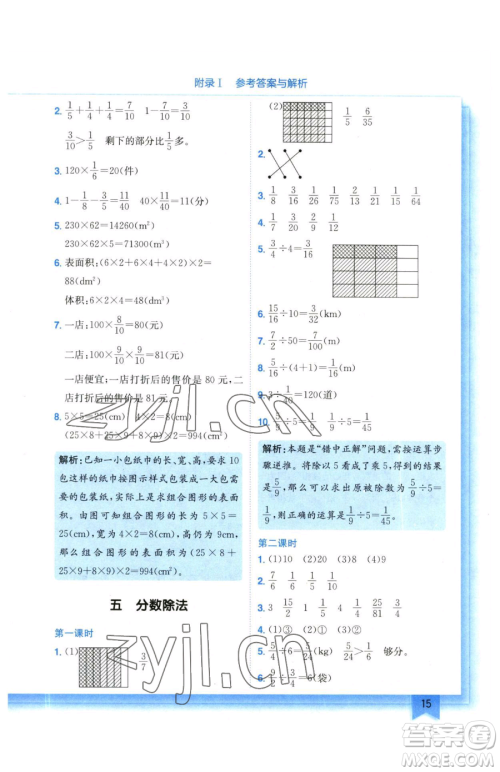 附录Ⅰ 参考答案与解析
2. 1/5+1/4+1/4=7/10 1-7/10=3/10
3/10>1/5 剩下的部分比1/5多
3. 120×1/6=20(件)
4. 1-1/8-3/5=11/40 40×11/40=11(分)
5. 230×62=14260(m²)
230×62×5=71300(m³)
6. 表面积:(6×2+6×4×2+4×2×2)=
88(dm²)
体积:6×2×4=48(dm³)
7. 一店:100×8/10=80(元)
二店:100×9/10×9/10=81(元)
一店便宜;一店打折后的售价是80元,二
店打折后的售价是81元。
8. 5×5=25(cm) 4×2=8(cm)
(25×8+25×9+8×9)×2=994(cm²)
解析:已知一小包纸巾长、宽、高,要求10
包这样的纸巾按图样式包装成长方体需
要的包装纸,就是求组合图形的表面积。
由图可知组合图形的长是5×5=
25(cm),宽是4×2=8(cm),高仍为9cm,
那么组合图形的表面积是(25×8+25×
9+8×9)×2=994(cm²)
五 分数除法
第一课时
1. (1) 3/7
(2) 1/5 6/35
2.
3. 1/8 3/16 11/28 1/15 1/12 1/64
4. 1/7 3/20 2/9
5. 3/5÷4=3/20
6. 15/16÷10=3/32(km)
7. 7/2÷50=7/100(m)
8. 5/16÷(4+1)=1/16(m)
9. 3÷1/40=120(道)
10. 5/9÷5=1/9 1/9÷5=1/45
解析:本题是“错中正解”问题,需按运算步
骤逆推。将除以5看成了乘5,结果是
5/9,那么可以求出原被除数是5/9÷5=
1/9,则正确的运算结果是1/9÷5=1/45
第二课时
1. (1)10 (2)24 (3)8 (4)9
2. 7/6 1/6 1 1 3/7 1/7
3. 3 15/2 1/4 3/4 25/81 3/4
4. (1)③ (2)① (3)②